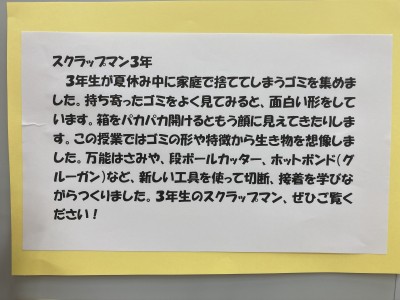 スクラップマン3年
3年生が夏休み中に家庭で捨ててしまうゴミを集めま
した。持ち寄ったゴミをよく見てみると、面白い形をして
います。箱をパカパカ開けるともう顔に見えてきたりしま
す。この授業ではゴミの形や特徴から生き物を想像しま
した。万能はさみや、段ボールカッター、ホットボンド(グ
ルーガン)など、新しい工具を使って切断、接着を学びな
がらつくりました。3年生のスクラップマン、ぜひご覧く
ださい!